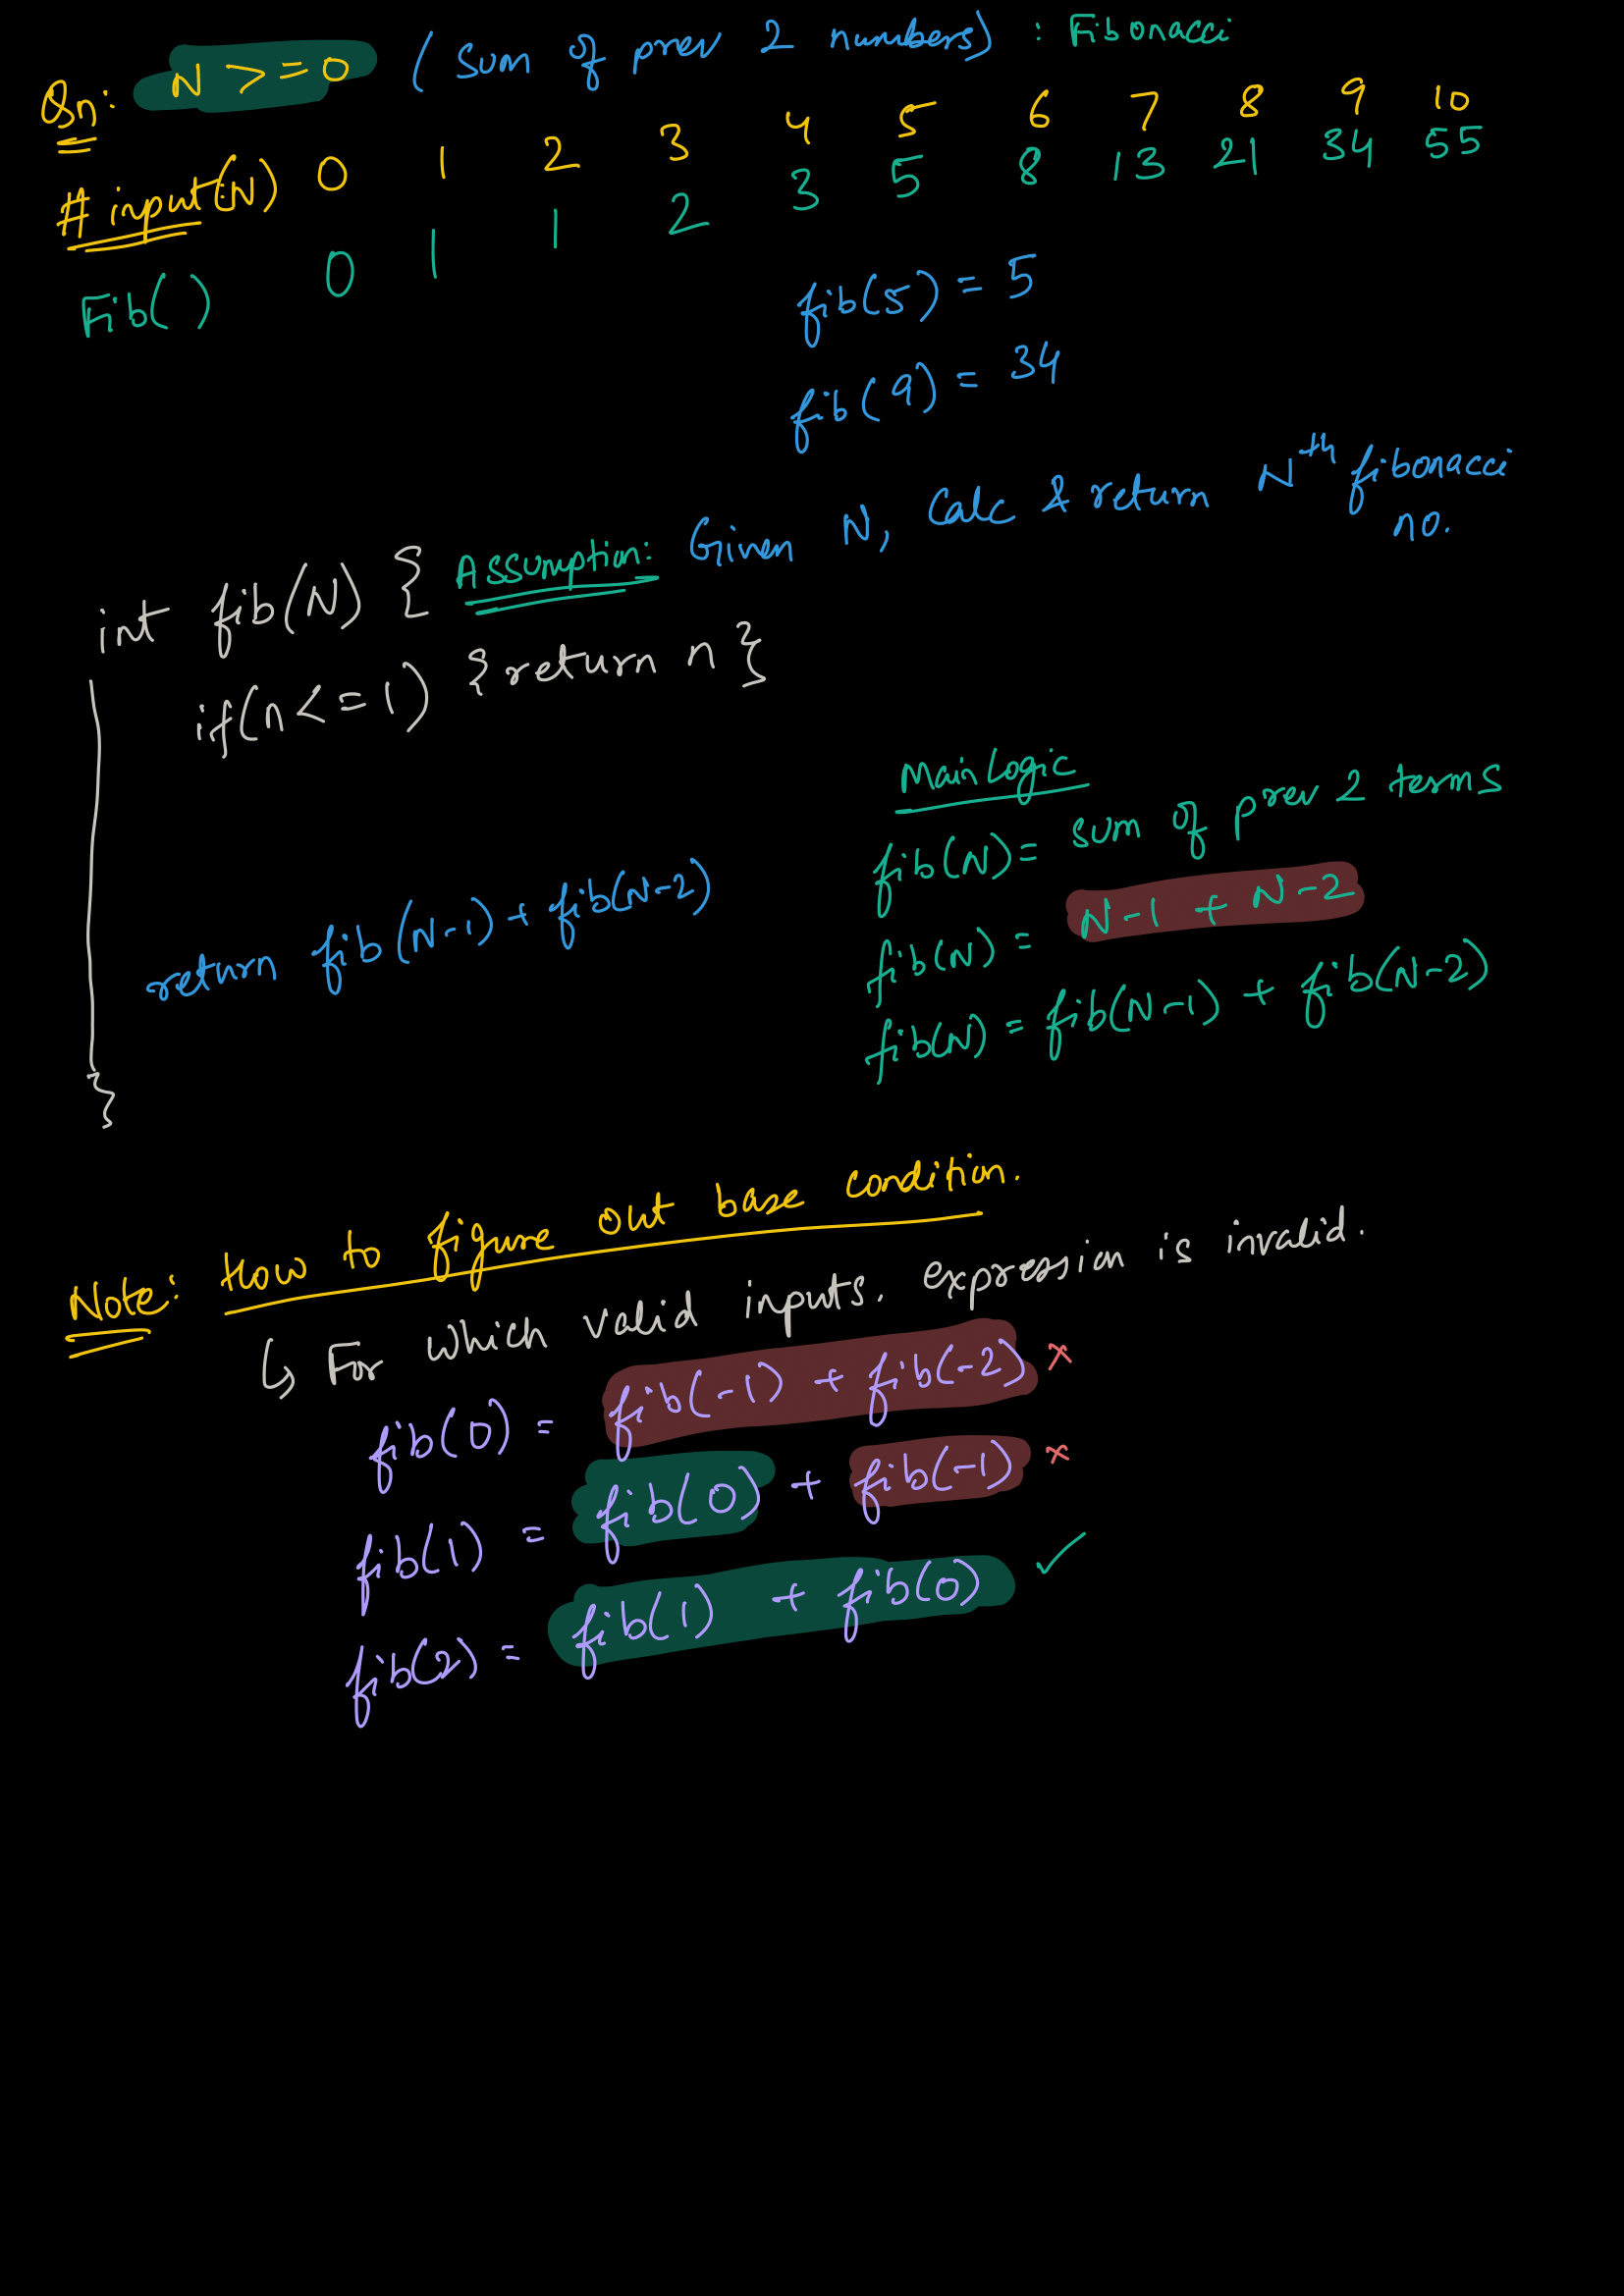 Qn: N >= 0 (Sum of prev 2 numbers) : Fibonacci
# input(N) 0 1 2 3 4 5 6 7 8 9 10
Fib( ) 0 1 1 2 3 5 8 13 21 34 55
fib(5) = 5
fib(9) = 34
int fib(N) { Assumption: Given N, Calc & return Nth fibonacci no.
if(n <= 1) {return n}
Main Logic
fib(N) = sum of prev 2 terms
return fib(N-1) + fib(N-2)
fib(N) = N-1 + N-2
fib(N) = fib(N-1) + fib(N-2)
}
Note: How to figure out base condition.
↳ For which valid inputs. expression is invalid.
fib(0) = fib(-1) + fib(-2) ×
fib(1) = fib(0) + fib(-1) ×
fib(2) = fib(1) + fib(0) ✓